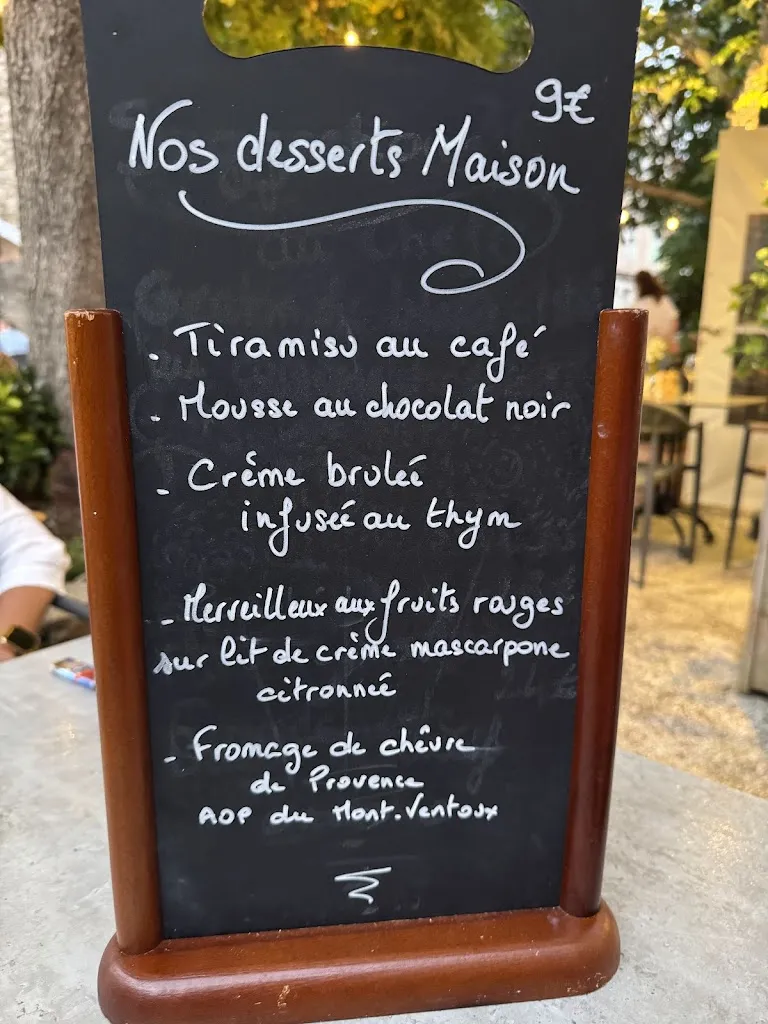 9€
Nos desserts Maison
. Tiramisu au café
. Mousse au chocolat noir
- Crême brulée
infusée au thym
- Merveilleux aux fruits rouges
sur lit de crème mascarpone
citronnée
- Fromage de chêvre
de Provence
AOP du Mont-Ventoux